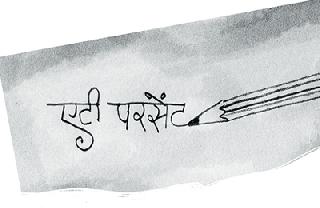 एटी परसेंट